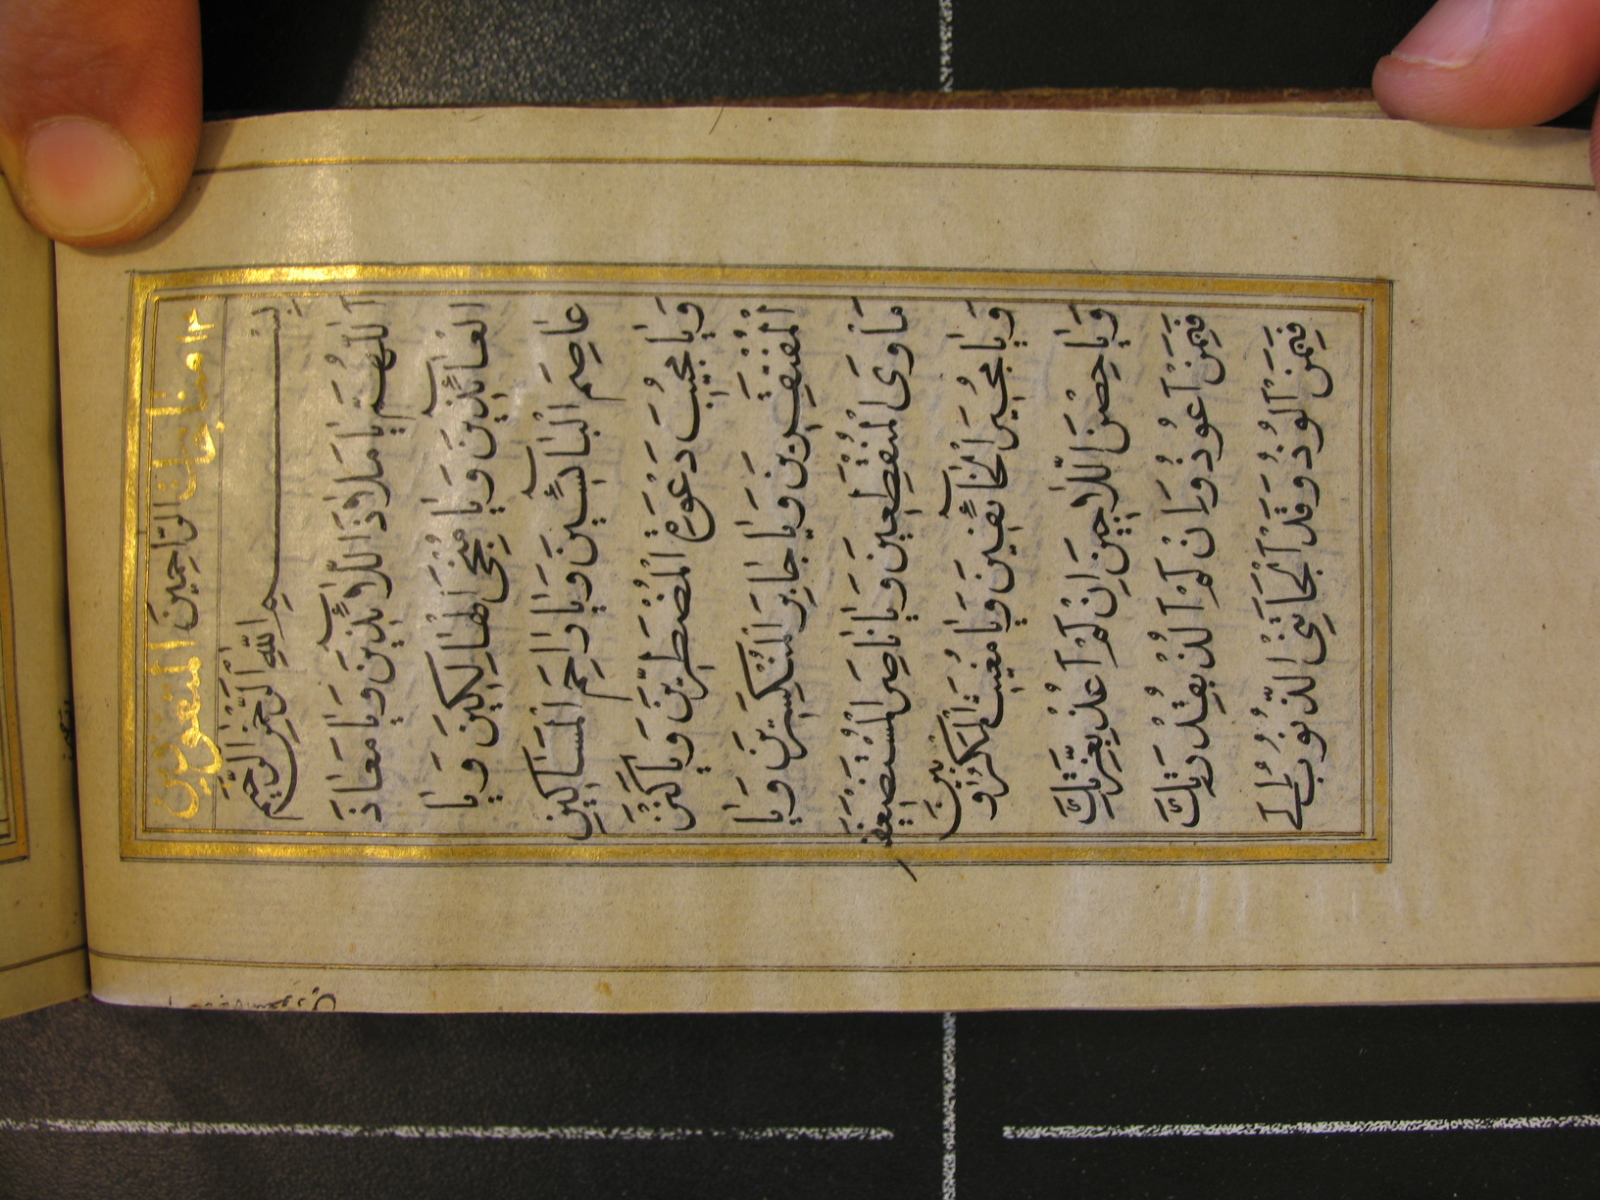 مناجات الرَّاحِمِينَ المتعوذين
بِسْمِ اللّٰهِ الرَّحْمٰنِ الرَّحِيمِ
اَللّٰهُمَّ يَا مَلَاذَ اللَّائِذِينَ وَيَا مَعَاذَ
الْعَائِذِينَ وَيَا مُنْجِيَ الْهَالِكِينَ وَيَا
عَاصِمَ الْبَائِسِينَ وَيَا رَاحِمَ الْمَسَاكِينِ
وَيَا مُجِيبَ دَعْوَةِ الْمُضْطَرِّينَ وَيَا كَنْزَ
الْمُفْتَقِرِينَ وَيَا جَابِرَ الْمُنْكَسِرِينَ وَيَا
مَأْوَى الْمُنْقَطِعِينَ وَيَا نَاصِرَ الْمُسْتَضْعَفِينَ
وَيَا مُجِيرَ الْخَائِفِينَ وَيَا مُغِيثَ الْمَكْرُوبِينَ
وَيَا حِصْنَ اللَّاجِينَ اِنْ لَمْ اَعُذْ بِعِزَّتِكَ
فَبِمَنْ اَعُوذُ وَاِنْ لَمْ اَلُذْ بِقُدْرَتِكَ
فَبِمَنْ اَلُوذُ وَقَدْ اَلْجَاَتْنِي الذُّنُوبُ اِلَى